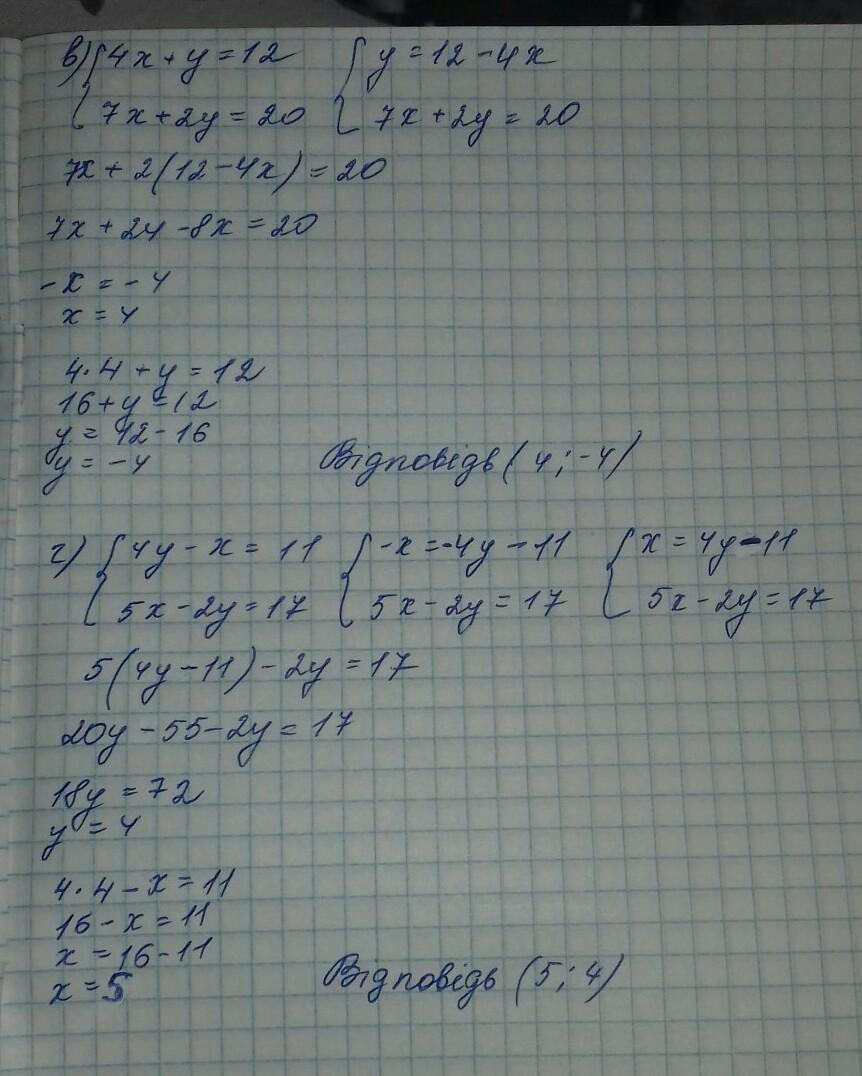 в) { 4x + y = 12 { y = 12 - 4x
7x + 2y = 20 7x + 2y = 20
7x + 2(12 - 4x) = 20
7x + 24 - 8x = 20
-x = -4
x = 4
4·4 + y = 12
16 + y = 12
y = 12 - 16
y = -4 Відповідь (4; -4)
г) { 4y - x = 11 { -x = -4y - 11 { x = 4y - 11
5x - 2y = 17 5x - 2y = 17 5x - 2y = 17
5(4y - 11) - 2y = 17
20y - 55 - 2y = 17
18y = 72
y = 4
4·4 - x = 11
16 - x = 11
x = 16 - 11
x = 5 Відповідь (5; 4)